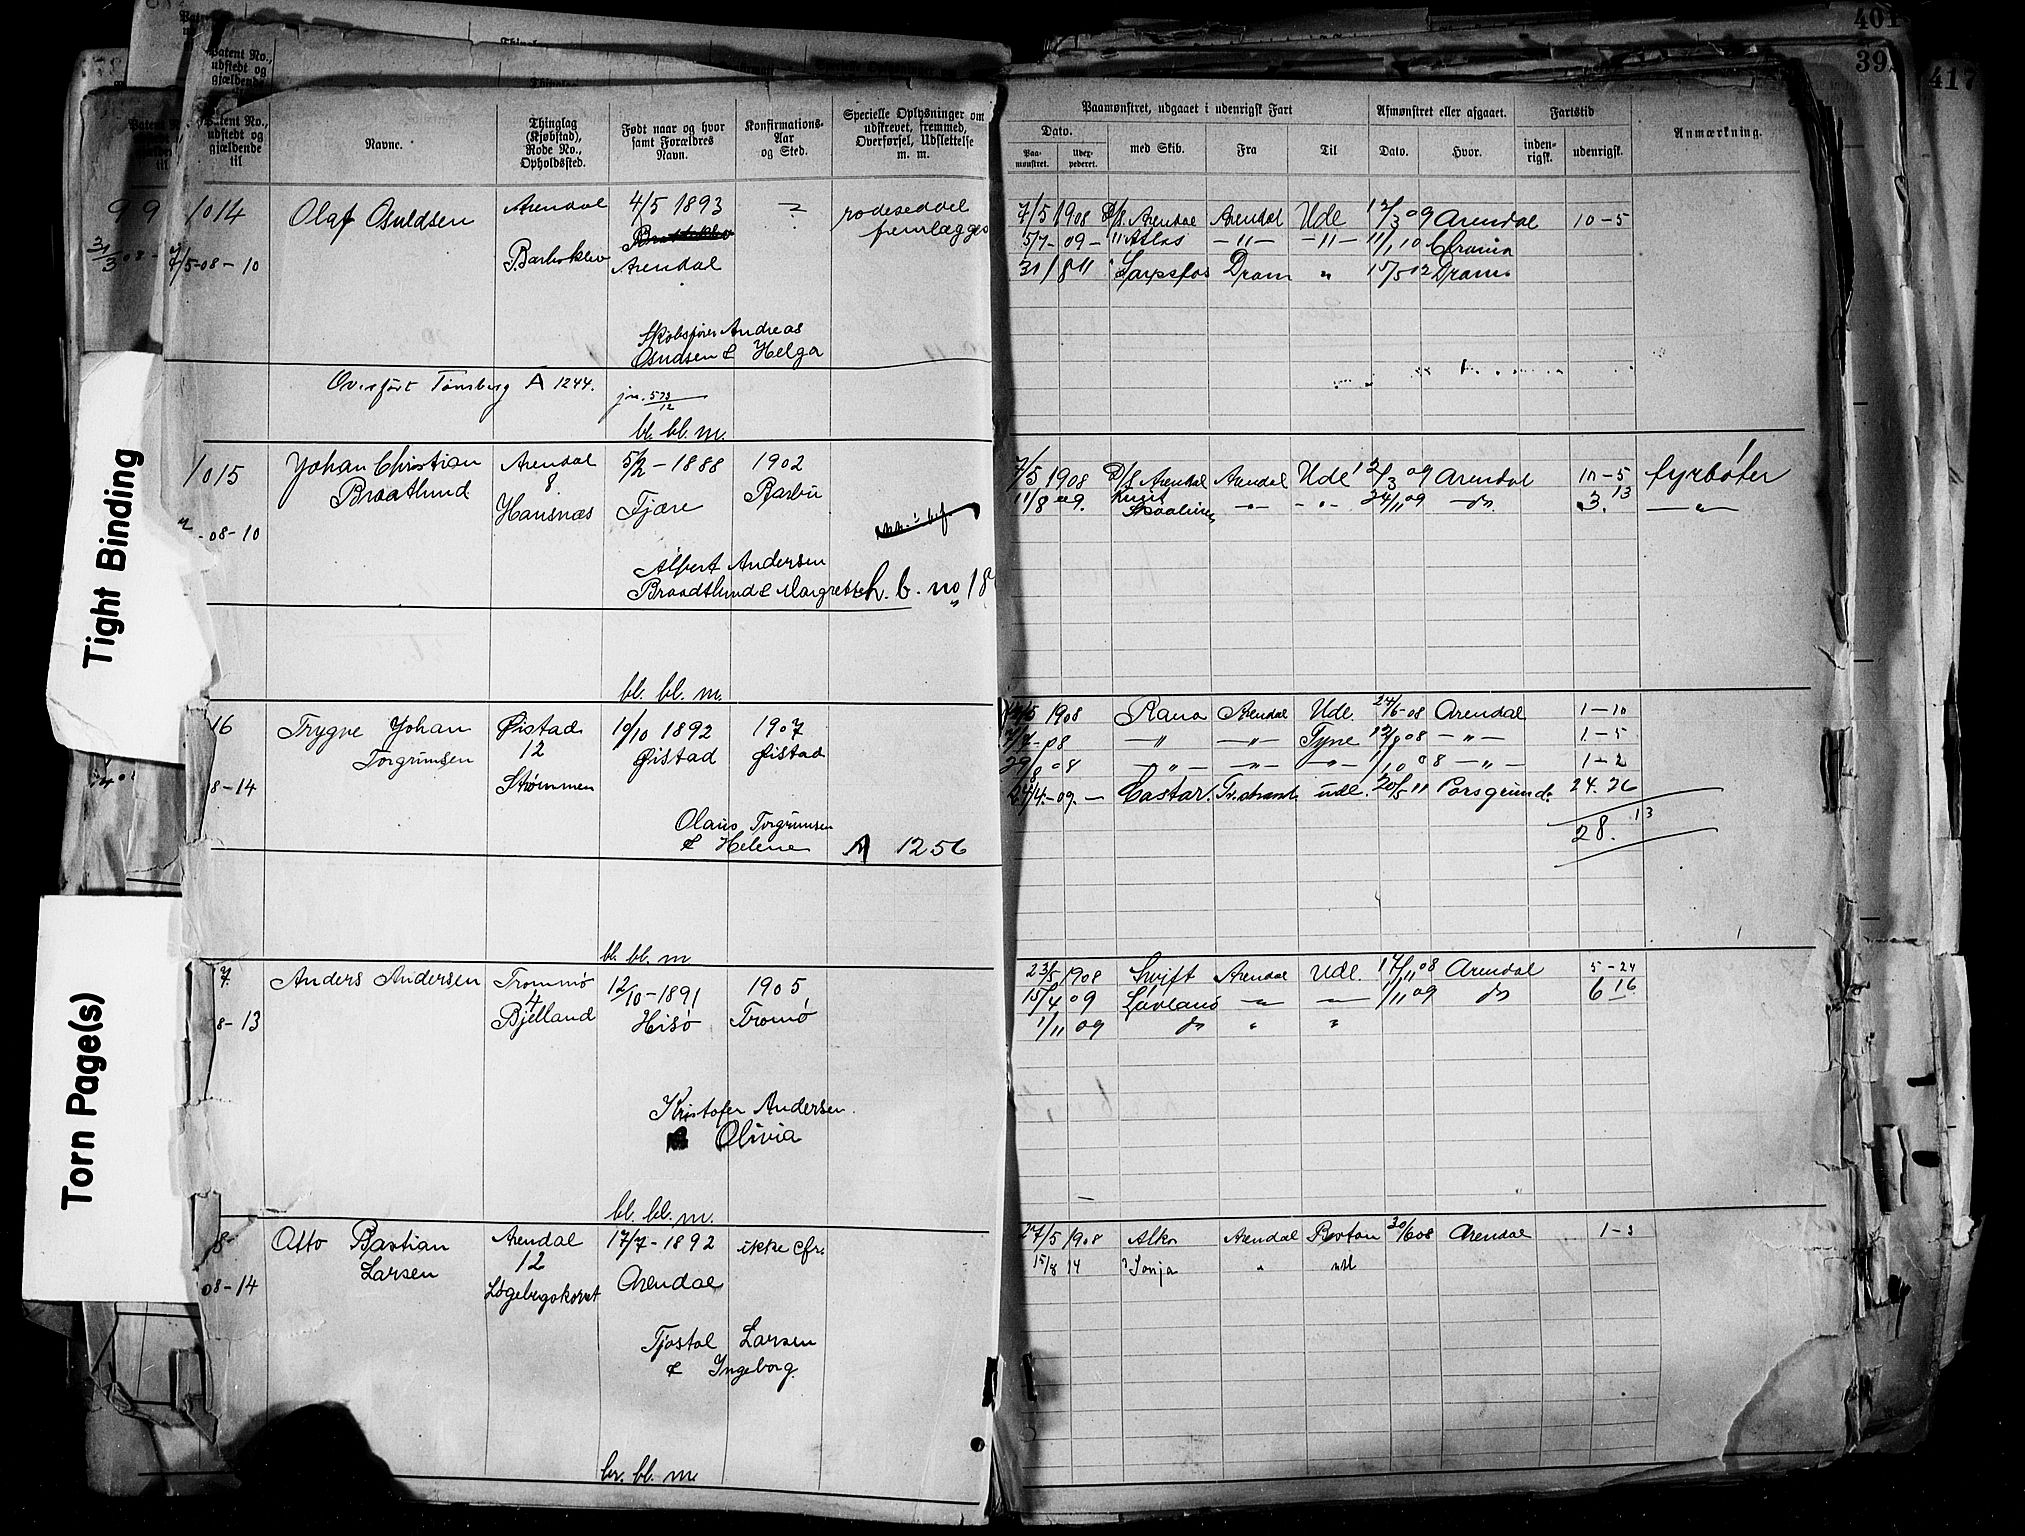 401
39
417
Tight Binding
Torn Page(s)
Patent No., udstedt og gjældende til
Navne.
Thinglag (Kjøbstad), Rode No., Opholdssted.
Født naar og hvor samt Forældres Navn.
Konfirmations-Aar og Sted.
Specielle Oplysninger om udskrevet, fremmed, Overførsel, Udslettelse m. m.
Paamønstret, udgaaet i udenrigsk Fart
Afmønstret eller afgaaet.
Fartstid
Anmærkning.
Dato.
Paamønstret.
med Skib.
Fra
Til
Dato.
Hvor.
indenrigsk.
udenrigsk.
1014 Olaf Osuldsen Arendal 4/5 1893 ? rodeseddel fremlægges
7/5-08-10 Barbokleu Arendal
Andreas
& Helga
Overført Tønsberg A 1244.
jr. 573/12
bl. bl. m.
7/5 1908 D/S Arendal Arendal Udl 12/3 09 Arendal 10-5
5/7-09- " Atlas -"- -"- 11/1 10 Chrania
31/8 11 " Sarpsfos Dram " 15/5 12 Dram.
1015 Johan Christian Braatlund Arendal 8 5/2-1888 1902
Hansnæs Fjære Barbu
-08-10
Albert Andersen
Braadtlund & Margrethe h. b. no 18
bl. bl. m.
7/5 1908 D/S Arendal Arendal Udl 2/3 09 Arendal 10-5 fyrbøter
11/8 09. 24/11 09 do 3.13 -"-
16 Trygve Johan Torgrimsen Øistad 12 10/10 1892 1907
8-14 Strømmen Øistad Øistad
Olaus Torgrimsen
& Helene A 1256
bl. bl. m
1908 Rana Arendal Udl. 24/6-08 Arendal 1-10
-08 -"- -"- Tyne -"- 1-5
29/8 08 -"- -"- -"- -"- 1-2
24/4-09.- Castor. udl. 20/5 11 Porsgrund. 24.26
28.13
7 Anders Andersen Tromø 4 12/10-1891 1905
8-13 Bjelland Hisø Tromø
Kristofer Andersen.
Olivia
bl. bl. m.
23/5 1908 Swift Arendal Udl. 17/11 08 Arendal 5-24
15/4 09 -"- -"- 1/11 09 do 6 16
1/11 09 do " "
8 Otto Bastian Larsen Arendal 12 17/7-1892 ikke cfr.
08-14 Arendal
Tjostol Larsen
& Ingeborg.
bl. m.
27/5 1908 Alko Arendal 30/6 08 Arendal 1-3
15/8 14 Sonja " udl